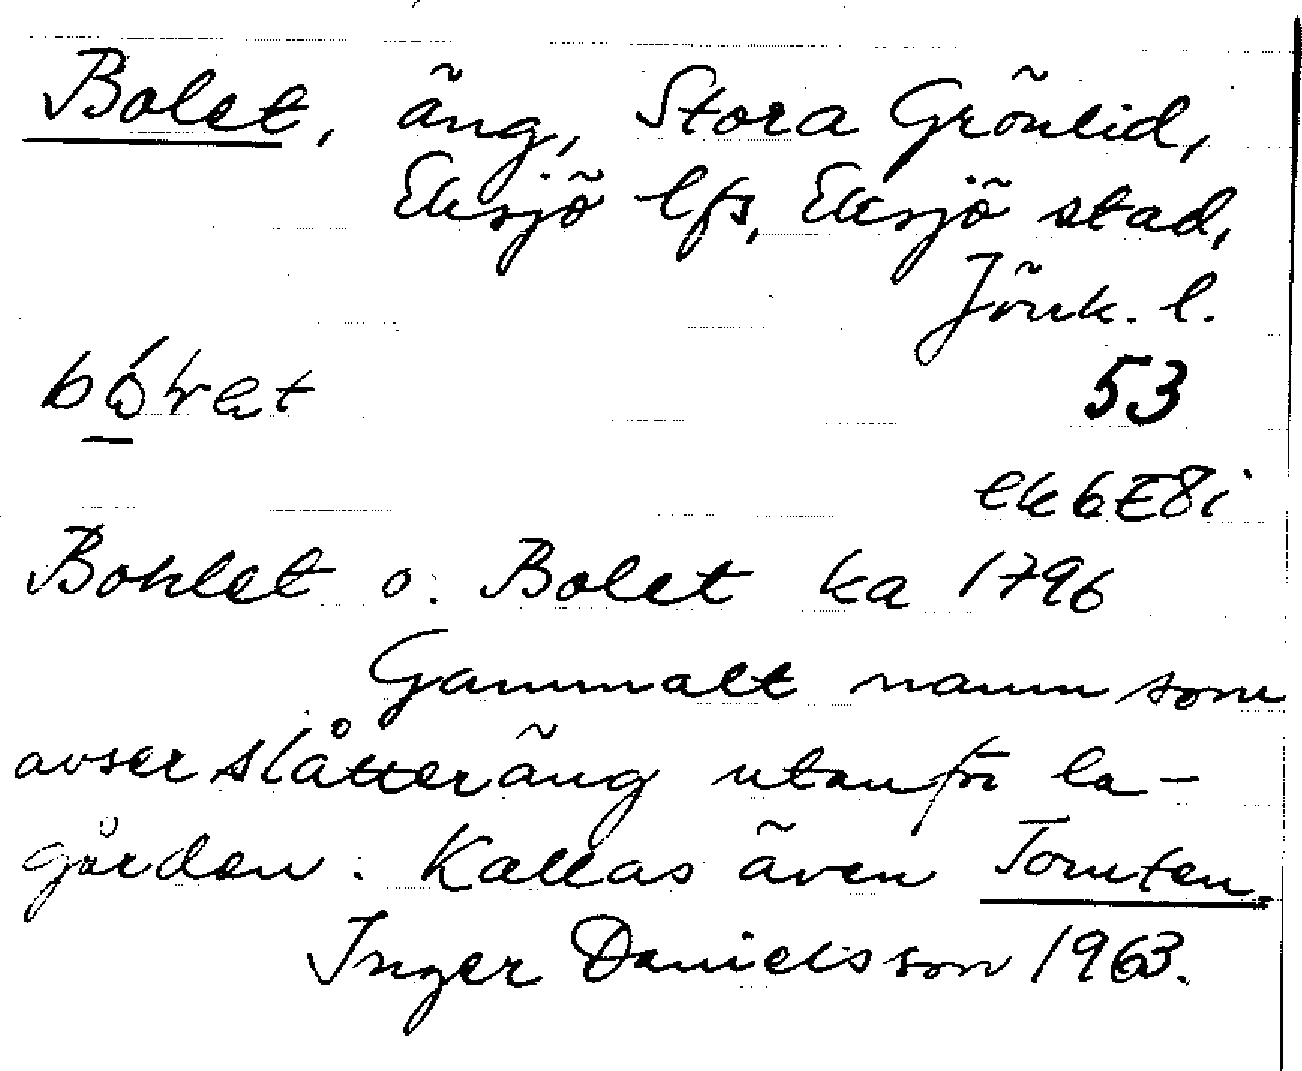 Bolet, äng, Stora Grönlid,
Eksjö lfs, Eksjö stad,
Jönk. l.
53
ek 6E8i
Bohlet o. Bolet ka 1796
Gammalt namn som
avser slåtteräng utanför la-
gården. Kallas även Tomten.
Inger Danielsson 1963.